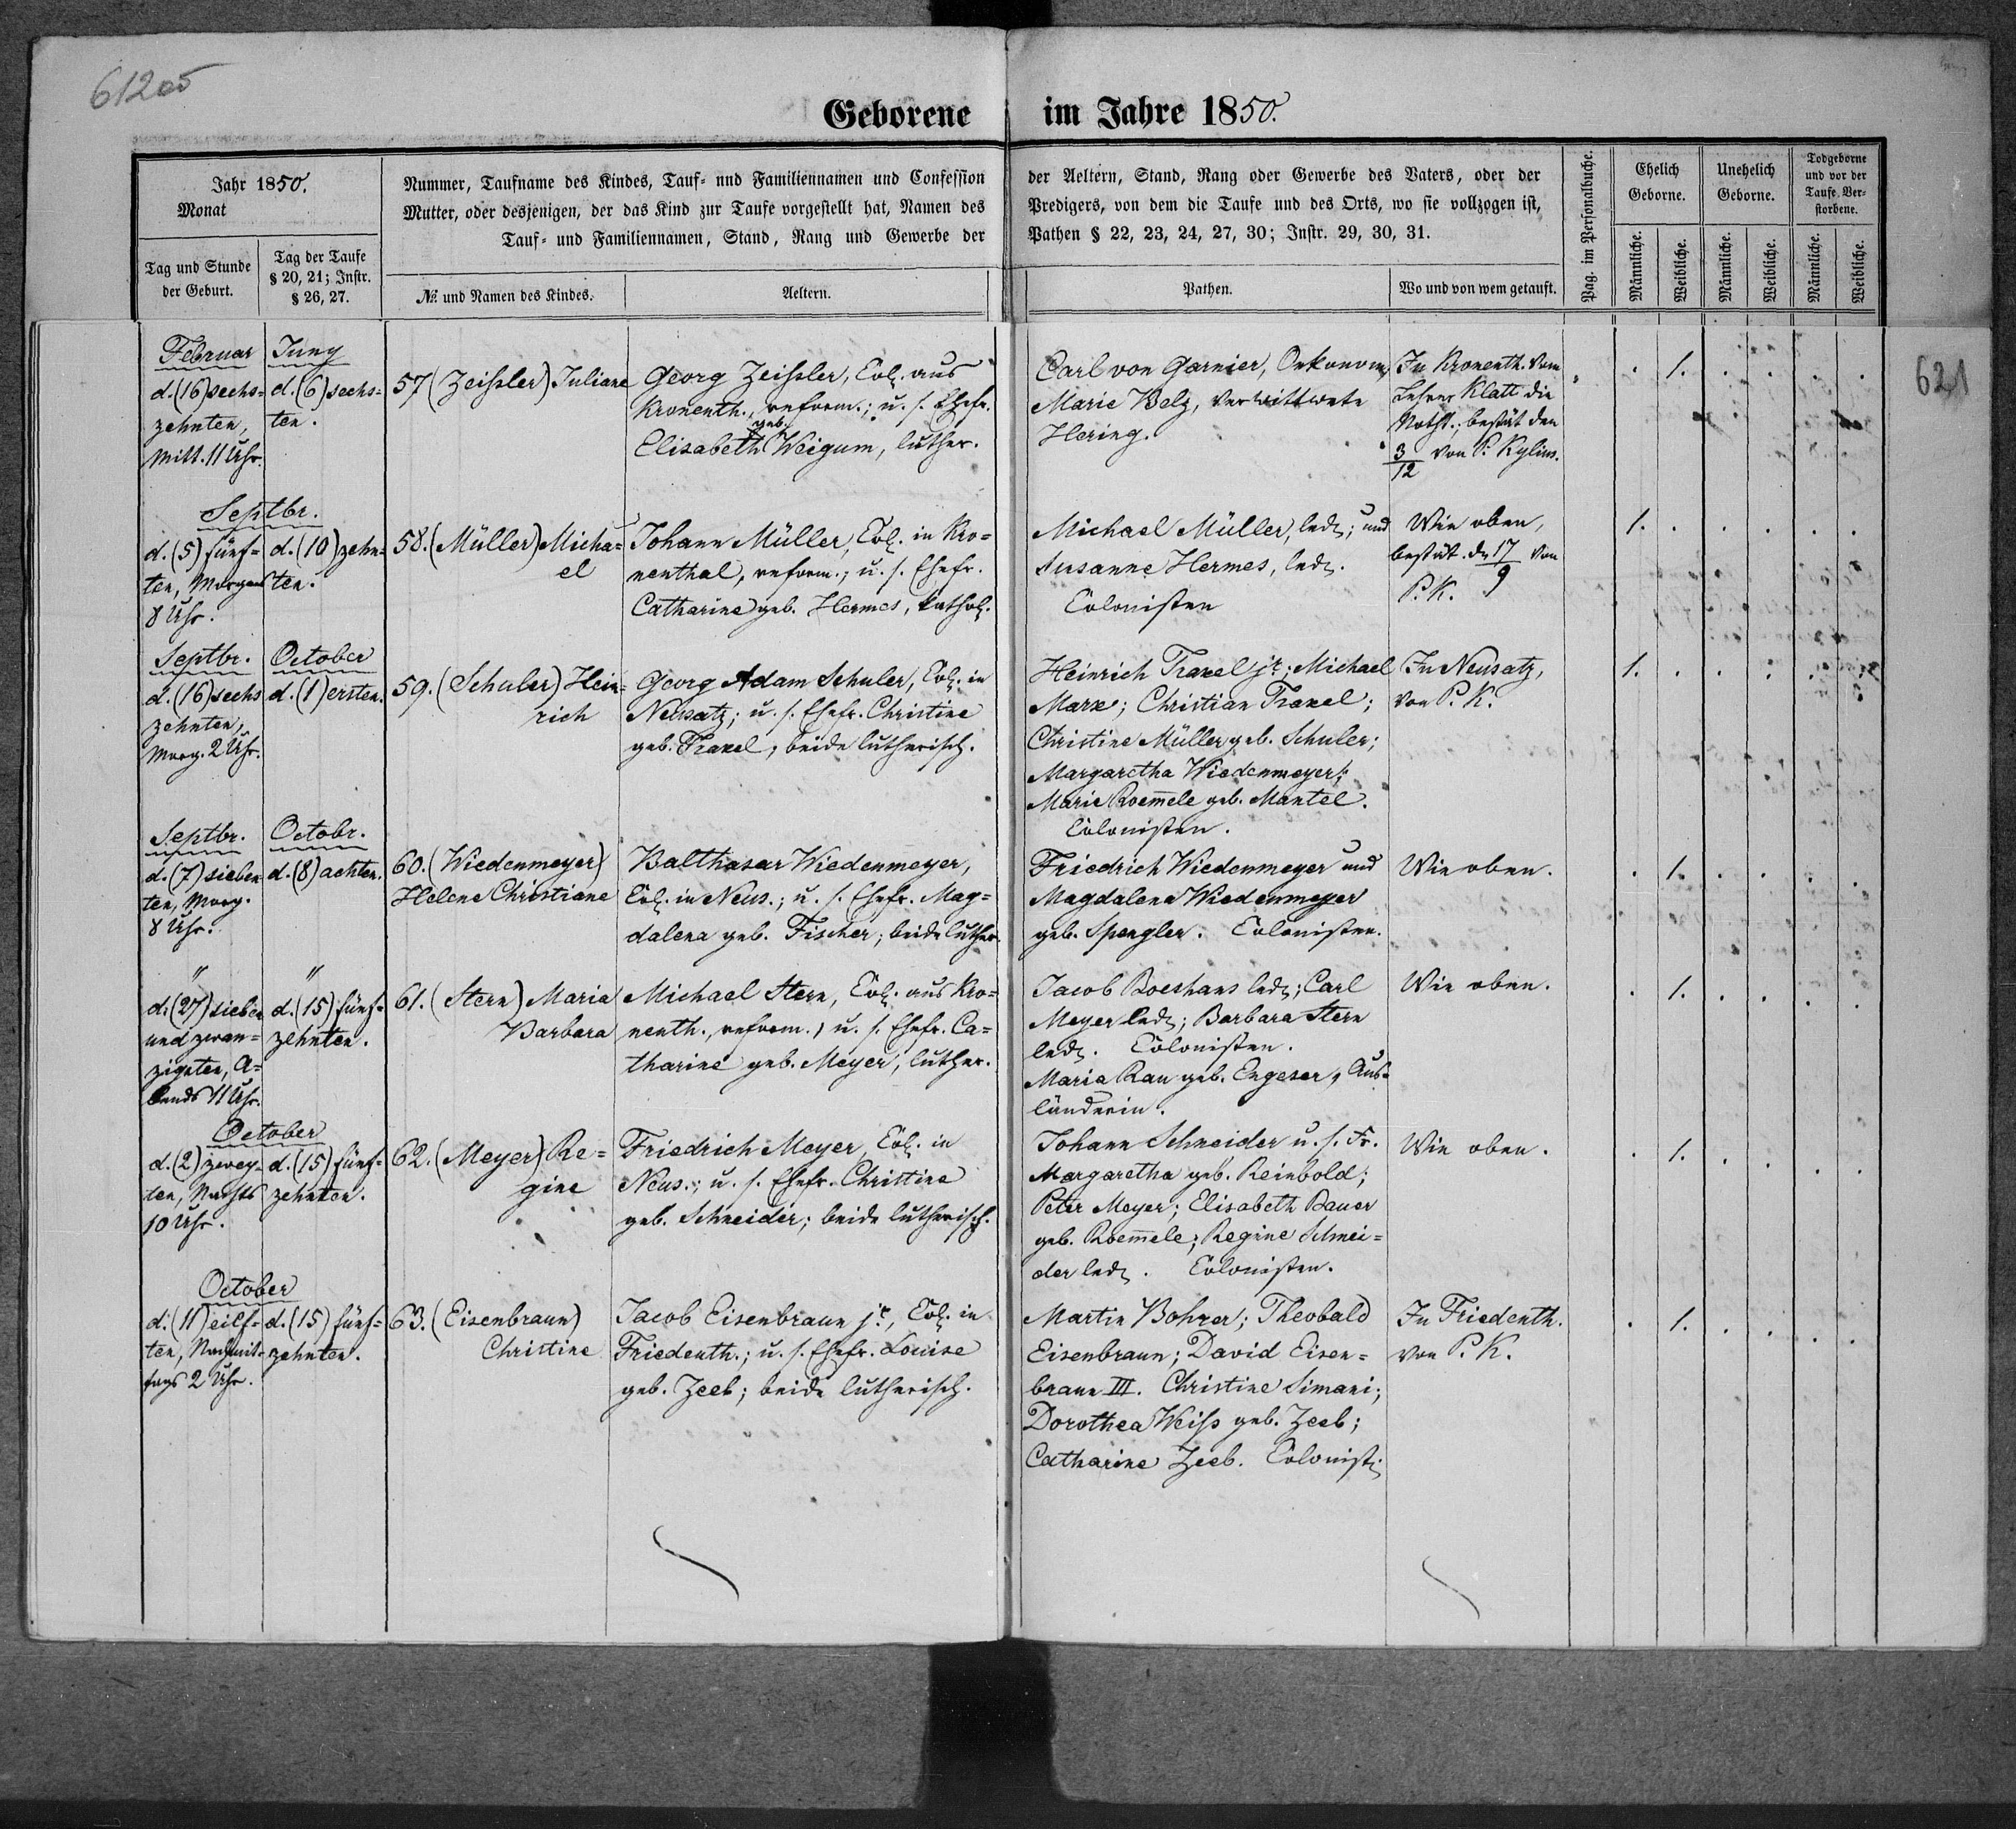 61205
Geborene im Jahre 1850.
Jahr 1850.
Monat
Tag und Stunde der Geburt.
Tag der Taufe § 20, 21; Instr. § 26, 27.
Nummer, Taufname des Kindes, Tauf- nnd Familiennamen und Confession
Mutter, oder desjenigen, der das Kind zur Taufe vorgestellt hat, Namen des
Tauf- und Familiennamen, Stand, Rang und Gewerbe der
No. und Namen des Kindes.
Aeltern.
der Aeltern, Stand, Rang oder Gewerbe des Vaters, oder der
Predigers, von dem die Taufe und des Orts, wo sie vollzogen ist,
Pathen § 22, 23, 24, 27, 30; Instr. 29, 30, 31.
Pathen.
Wo und von wem getauft.
Pag. im Personalbuche.
Ehelich Geborne.
Unehelich Geborne.
Todgeborne und vor der Taufe Verstorbene.
Männliche.
Weibliche.
Männliche.
Weibliche.
Männliche.
Weibliche.
621
Februar
d. (16) sechs=
zehnten,
Mitt. 11 Uhr.
Juny
d. (6) sechs=
ten.
57 (Zeißler) Juliane
Georg Zeißler, Col. aus
Kronenth., reform.; u. s. Ehefr.
Elisabeth geb. Weigum, luther.
Carl von Garnier, Oekonom,
Marie Belz, verwittwete
Hering.
In Kronenth. vom
Lehrer Klatt die
Notht.; bestät den
3/12 von P. Kylius.
1.
Septbr.
d. (5) fünf=
ten, Morgens
8 Uhr.
d. (10) zehn=
ten.
58. (Müller) Micha=
el
Johann Müller, Col. in Kro=
nenthal, reform.; u. s. Ehefr.
Catharine geb. Hermes, kathol.
Michael Müller, led.; und
Susanne Hermes, led.
Colonisten
Wie oben,
bestät. d. 17/9 von
P. K.
1.
Septbr.
d. (16) sechs
zehnten,
Morg. 2 Uhr.
October
d. (1) ersten.
59. (Schuler) Hein=
rich
Georg Adam Schuler, Col. in
Neusatz; u. s. Ehefr. Christine
geb. Traxel, beide lutherisch.
Heinrich Traxel jr.; Michael
Marx; Christian Traxel;
Christine Müller geb. Schuler;
Margaretha Wiedenmeyer;
Marie Roem̄ele geb. Mantel.
Colonisten.
In Neusatz,
von P. K.
1.
Septbr.
d. (7) sieben
ten, Morg.
8 Uhr.
Octobr.
d. (8) achten.
60. (Wiedenmeyer)
Helene Christiane
Balthasar Wiedenmeyer,
Col. in Neus.; u. s. Ehefr. Mag=
dalena geb. Fischer; beide luther.
Friedrich Wiedenmeyer und
Magdalena Wiedenmeyer
geb. Spengler. Colonisten.
Wie oben.
1.
"
d. (27) sieben
und zwan=
zigsten, A=
bends 11 Uhr.
"
d. (15) fünf=
zehnten.
61. (Stern) Maria
Barbara
Michael Stern, Col. aus Kro=
nenth., reform., u. s. Ehefr. Ca=
tharine geb. Meyer, luther.
Jacob Roeshans led.; Carl
Meyer led.; Barbara Stern
led. Colonisten.
Maria Rau geb. Engeser, Aus=
länderin.
Wie oben.
1.
October
d. (2) zwey=
ten, Nachts
10 Uhr.
d. (15) fünf=
zehnten.
62. (Meyer) Re=
gine
Friedrich Meyer, Col. in
Neus.; u. s. Ehefr. Christine
geb. Schneider; beide lutherisch.
Johann Schneider u. s. Fr.
Margaretha geb. Reinbold;
Peter Meyer; Elisabeth Bauer
geb. Roem̄ele; Regine Schnei=
der led. Colonisten.
Wie oben.
1.
October
d. (11) eilf=
ten, Nachmit=
tags 2 Uhr.
d. (15) fünf=
zehnten.
63. (Eisenbraun)
Christine
Jacob Eisenbraun jr., Col. in
Friedenth.; u. s. Ehefr. Louise
geb. Zeeb; beide lutherisch.
Martin Bohrer; Theobald
Eisenbraun; David Eisen=
braun III. Christine Simani;
Dorothea Weiß geb. Zeeb;
Catharine Zeeb. Colonist.
In Friedenth.
von P. K.
1.